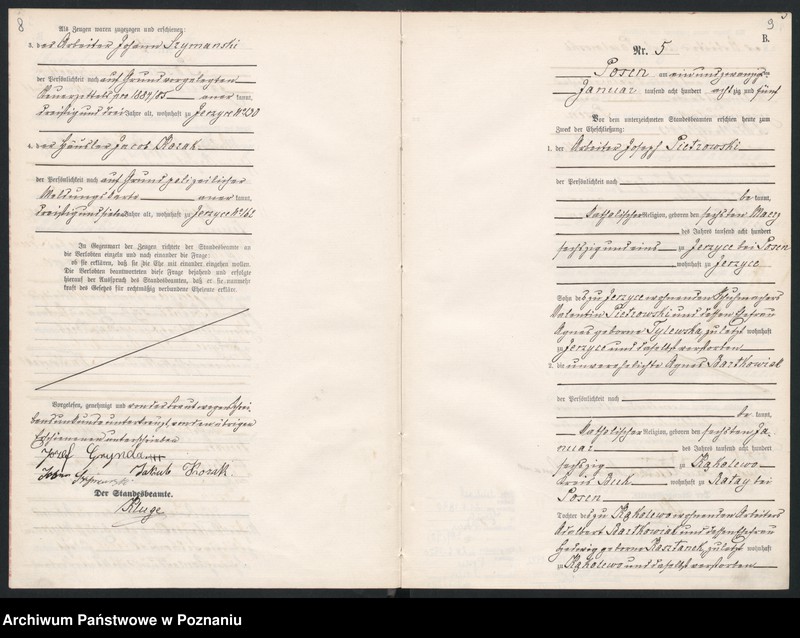 8
Als Zeugen waren zugezogen und erschienen:
3. der Arbeiter Johann Szymanski
der Persönlichkeit nach auf Grund vorgelegten
Steuerzettels pro 1884/85 aner kannt,
dreißig und drei Jahre alt, wohnhaft zu Jerzyce No
4. der Häusler Jacob Kozak
der Persönlichkeit nach auf Grund polizeilicher
Meldungskarte aner kannt,
dreißig und sieben Jahre alt, wohnhaft zu Jerzyce No
In Gegenwart der Zeugen richtete der Standesbeamte an
die Verlobten einzeln und nach einander die Frage:
ob sie erklären, daß sie die Ehe mit einander eingehen wollen.
Die Verlobten beantworteten diese Frage bejahend und erfolgte
hierauf der Ausspruch des Standesbeamten, daß er sie nunmehr
kraft des Gesetzes für rechtmäßig verbundene Eheleute erkläre.
Vorgelesen, genehmigt und von der Braut wegen Schrei
bensunkunde unterkreuzt, von den übrigen
Erschienenen unterschrieben
Józef Grynda +++
Johan Szymanski Jakub Kozak
Der Standesbeamte.
Kluge
9
B.
Nr. 5
Posen am ein und zwanzigsten
Januar tausend acht hundert acht zig und fünf
Vor dem unterzeichneten Standesbeamten erschien heute zum
Zweck der Eheschließung:
1. der Arbeiter Joseph Pietrowski
der Persönlichkeit nach
be kannt,
katholischer Religion, geboren den sechsten Maerz
des Jahres tausend acht hundert
sechszig und eins zu Jerzyce bei Posen
wohnhaft zu Jerzyce
Sohn des zu Jerzyce wohnenden Schuhmachers
Valentin Pietrowski und dessen Ehefrau
Agnes geborne Tylewska, zuletzt wohnhaft
zu Jerzyce und daselbst verstorben
2. die unverehelichte Agnes Bartkowiak
der Persönlichkeit nach
be kannt,
katholischer Religion, geboren den sechsten Ja-
nuar des Jahres tausend acht hundert
sechszig zu Kąkolewo
Kreis Buk wohnhaft zu Rataj bei
Posen
Tochter des zu Kąkolewo wohnenden Arbeiters
Adalbert Bartkowiak und dessen Ehefrau
Hedwig geborne zuletzt wohnhaft
zu Kąkolewo und daselbst verstorben
Archiwum Państwowe w Poznaniu